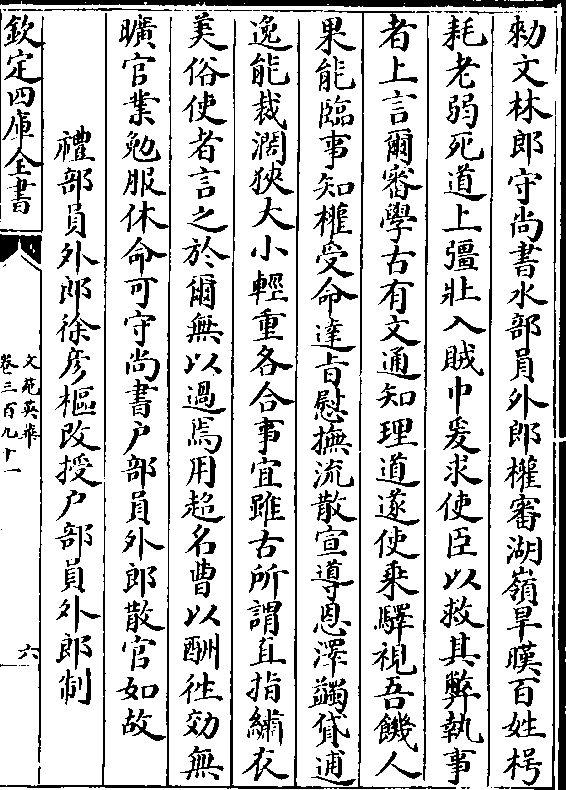 勅文林郎守尚書水部員外郎權審湖嶺旱暵百姓枵
耗老弱死道上彊壯入賊中爰求使臣以救其弊執事
者上言爾審學古有文通知理道遂使乗驛視吾饑人
果能臨事知權受命達旨慰撫流散宣導恩澤蠲貸逋
逸能裁濶狹大小輕重各合事宜雖古所謂直指繡衣
美俗使者言之於爾無以過焉用超名曹以酬徃効無
曠官業勉服休命可守尚書户部員外郎散官如故
禮部員外郎徐彦樞改授户部員外郎制
欽定四庫全書
文苑英華
卷三百九十一
六